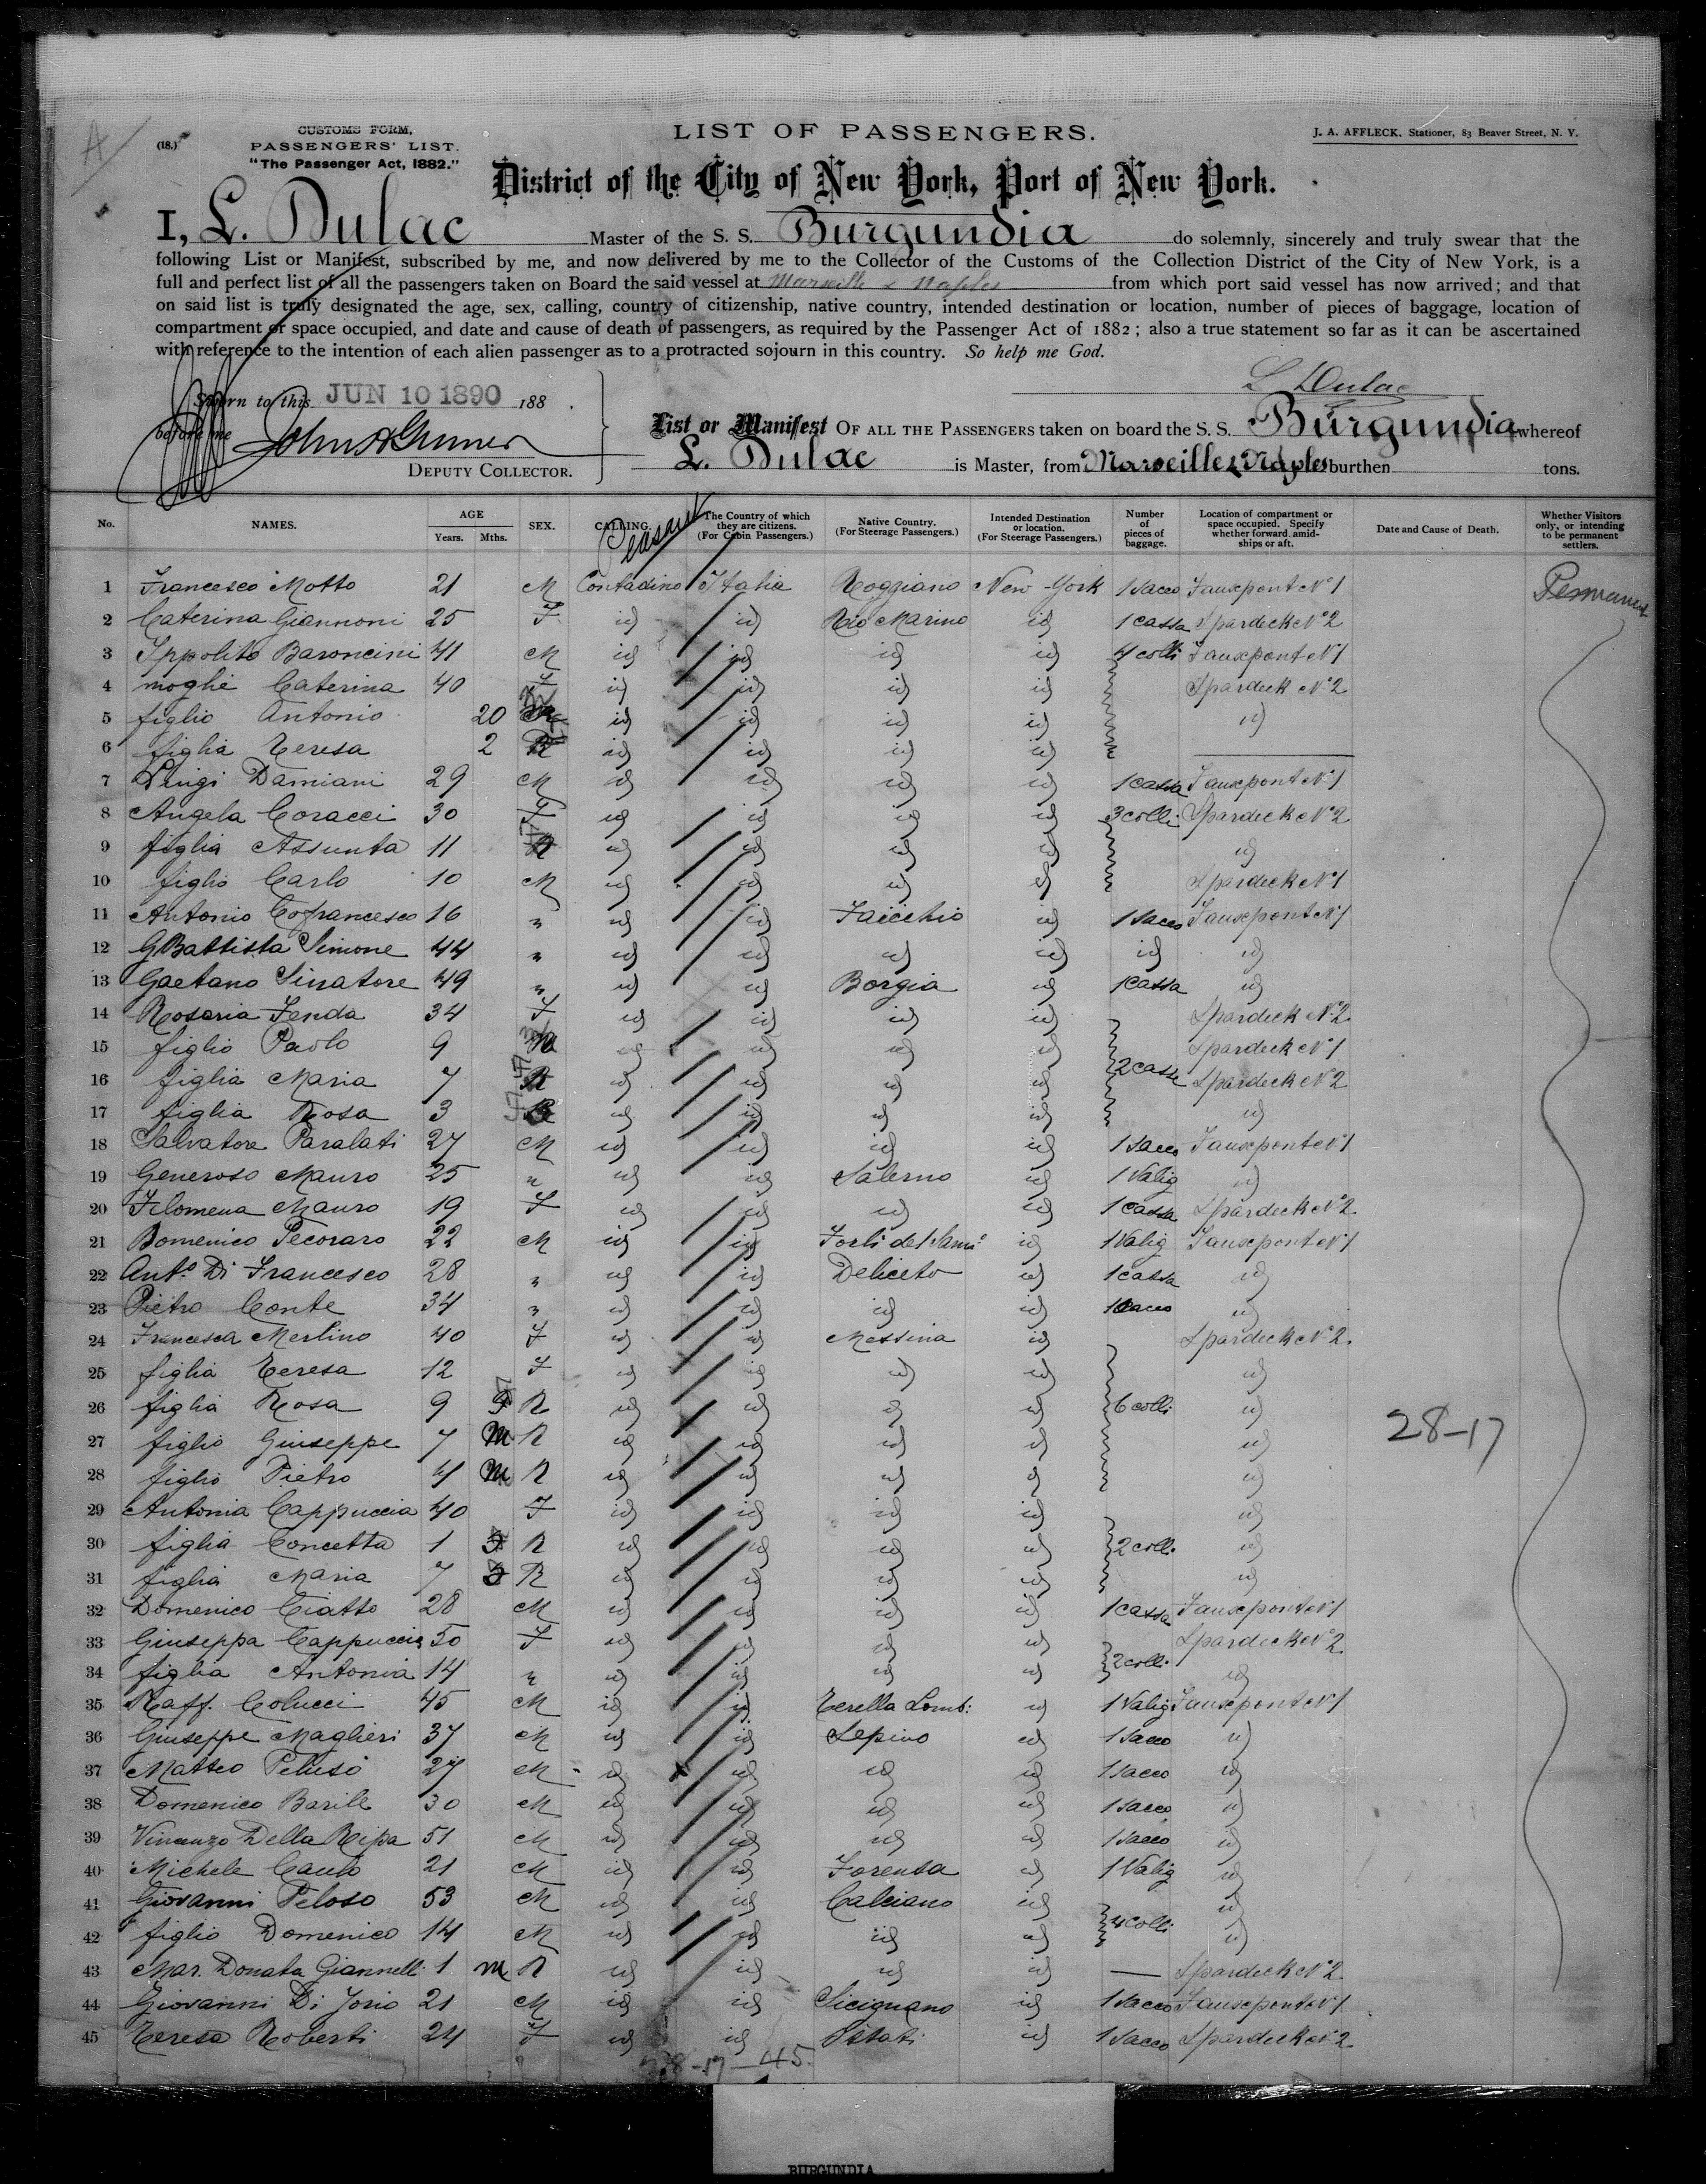 A
(18.)
CUSTOMS FORM,
PASSENGERS' LIST.
"The Passenger Act, 1882."
LIST OF PASSENGERS.
J. A. AFFLECK, Stationer, 83 Beaver Street, N. Y.
District of the City of New York, Port of New York.
I, L. Dulac Master of the S. S. Burgundia do solemnly, sincerely and truly swear that the
following List or Manifest, subscribed by me, and now delivered by me to the Collector of the Customs of the Collection District of the City of New York, is a
full and perfect list of all the passengers taken on Board the said vessel at Marseille & Naples from which port said vessel has now arrived; and that
on said list is truly designated the age, sex, calling, country of citizenship, native country, intended destination or location, number of pieces of baggage, location of
compartment or space occupied, and date and cause of death of passengers, as required by the Passenger Act of 1882; also a true statement so far as it can be ascertained
with reference to the intention of each alien passenger as to a protracted sojourn in this country. So help me God.
L Dulac
Sworn to this JUN 10 1890 188 .
before me
DEPUTY COLLECTOR.
List or Manifest OF ALL THE PASSENGERS taken on board the S. S. Burgundia whereof
L. Dulac is Master, from Marseille & Naples burthen tons.
No. NAMES. AGE Years. Mths. SEX. CALLING. The Country of which they are citizens. (For Cabin Passengers.) Native Country. (For Steerage Passengers.) Intended Destination or location. (For Steerage Passengers.) Number of pieces of baggage. Location of compartment or space occupied. Specify whether forward, amidships or aft. Date and Cause of Death. Whether Visitors only, or intending to be permanent settlers.
Peasant
1 Francesco Motto 21 M Contadino Italia Roggiano New-York 1 Sacco Fauxpont N°1 Permanent
2 Caterina Giannoni 25 F id id Rio Marino id 1 cassa Spardeck N°2
3 Ippolito Baroncini 41 M id id id id 4 colli Fauxpont N°1
4 moglie Caterina 40 F id id id id Spardeck N°2
5 figlio Antonio 20 id id id id id
6 figlia Teresa 2 id id id id
7 Luigi Damiani 29 M id id id id 1 cassa Fauxpont N°1
8 Angela Coracci 30 F id id id id 3 colli Spardeck N°2
9 figlia Assunta 11 id id id id id
10 figlio Carlo 10 M id id id id Spardeck N°1
11 Antonio Cofrancesco 16 " id id Faicchio id 1 Sacco Fauxpont N°1
12 GBattista Simone 44 " id id id id id id
13 Gaetano Sinatore 49 " id id Borgia id 1 Cassa id
14 Rosaria Fenda 34 F id id id id Spardeck N°2
15 figlio Paolo 9 id id id id Spardeck N°1
16 figlia Maria 7 F id id id id 2 casse Spardeck N°2
17 figlia Rosa 3 F id id id id id
18 Salvatore Paralati 27 M id id id id 1 Sacco Fauxpont N°1
19 Generoso Mauro 25 " id id Salerno id 1 Valig id
20 Filomena Mauro 19 F id id id id 1 cassa Spardeck N°2
21 Domenico Pecoraro 22 M id id Forli del Sam° id 1 Valig Fauxpont N°1
22 Ant.° Di Francesco 28 " id id Deliceto id 1 cassa id
23 Pietro Conte 34 " id id id id 1 Sacco id
24 Francesca Merlino 40 F id id Messina id Spardeck N°2.
25 figlia Teresa 12 F id id id id id
26 figlia Rosa 9 F R id id id id 6 colli id
27 figlio Giuseppe 7 M R id id id id id
28 figlio Pietro 4 M R id id id id id
29 Antonia Cappuccia 40 F id id id id id
30 figlia Concetta 1 F R id id id id 2 colli id
31 figlia Maria 7 F R id id id id id
32 Domenico Ciatto 28 M id id id id 1 cassa Fauxpont N°1
33 Giuseppa Cappuccia 50 F id id id id Spardeck N°2
34 figlia Antonia 14 " id id id id 2 colli id
35 Raff. Colucci 45 M id id Terella Lomb: id 1 Valig Fauxpont N°1
36 Giuseppe Maglieri 37 M id id Sepino id 1 Sacco id
37 Matteo Peluso 27 M id id id id 1 sacco id
38 Domenico Barile 30 M id id id id 1 sacco id
39 Vincenzo Della Ripa 51 M id id id id 1 sacco id
40 Michele Caulo 21 M id id Forenza id 1 Valig id
41 Giovanni Peloso 53 M id id Calciano id id
42 figlio Domenico 14 M id id id id 4 colli id
43 Mar. Donata Giannelli 1 m R id id id id — Spardeck N°2
44 Giovanni Di Jorio 21 M id id Sicignano id 1 Sacco Fauxpont N°1
45 Teresa Roberti 24 F id id id 1 Sacco Spardeck N°2
28-17
28-17-45.
BURGUNDIA